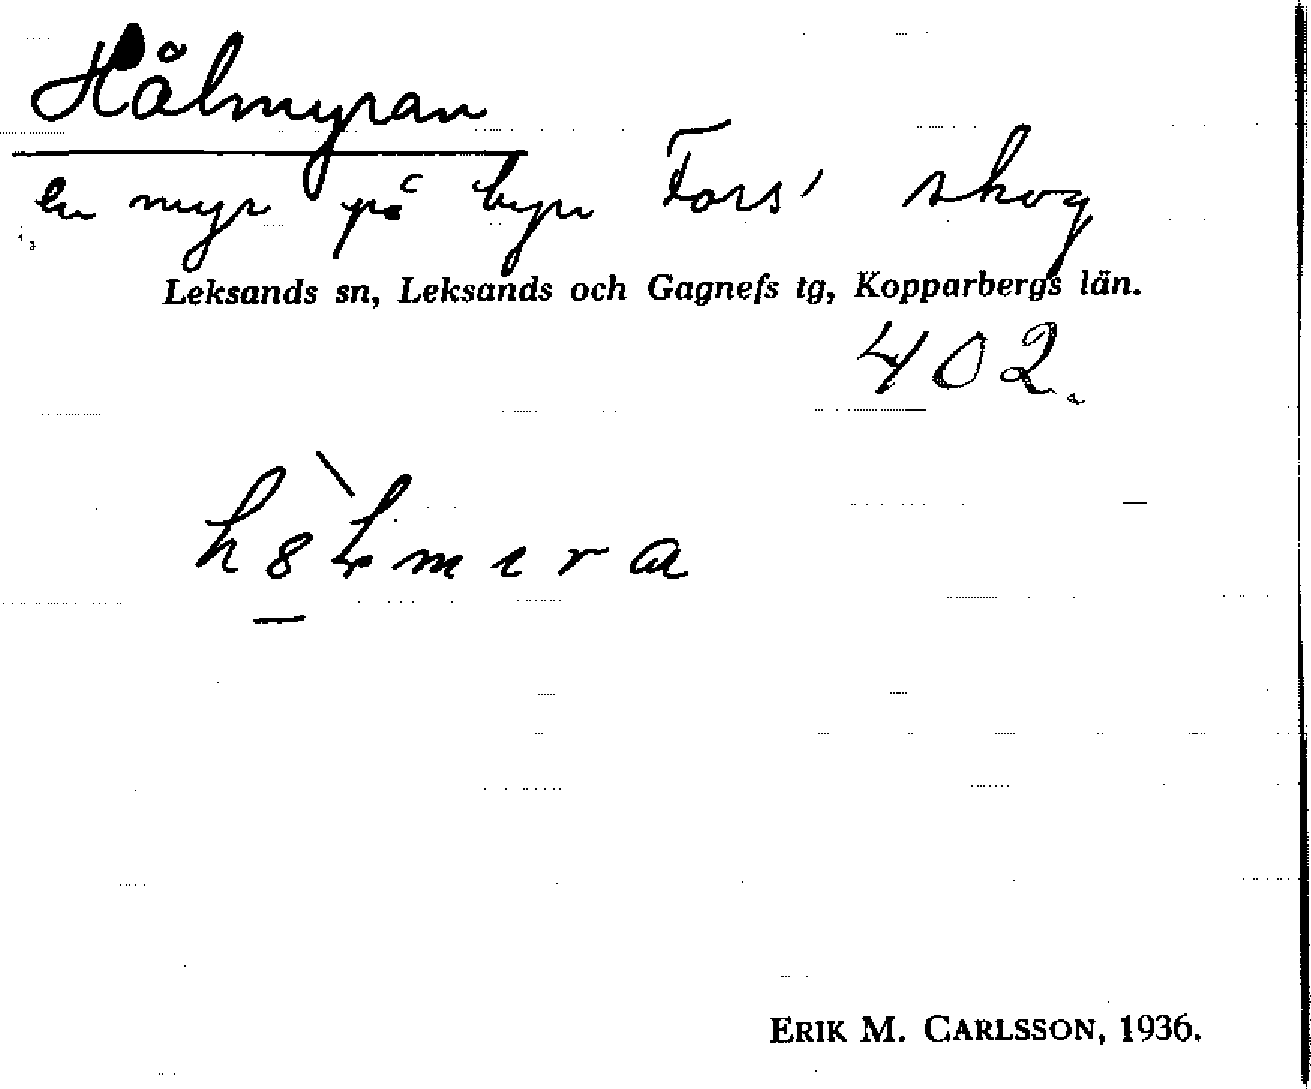 Hålmyran
en myr på byn Fors' skog
Leksands sn, Leksands och Gagnefs tg, Kopparbergs län.
402.
ERIK M. CARLSSON, 1936.